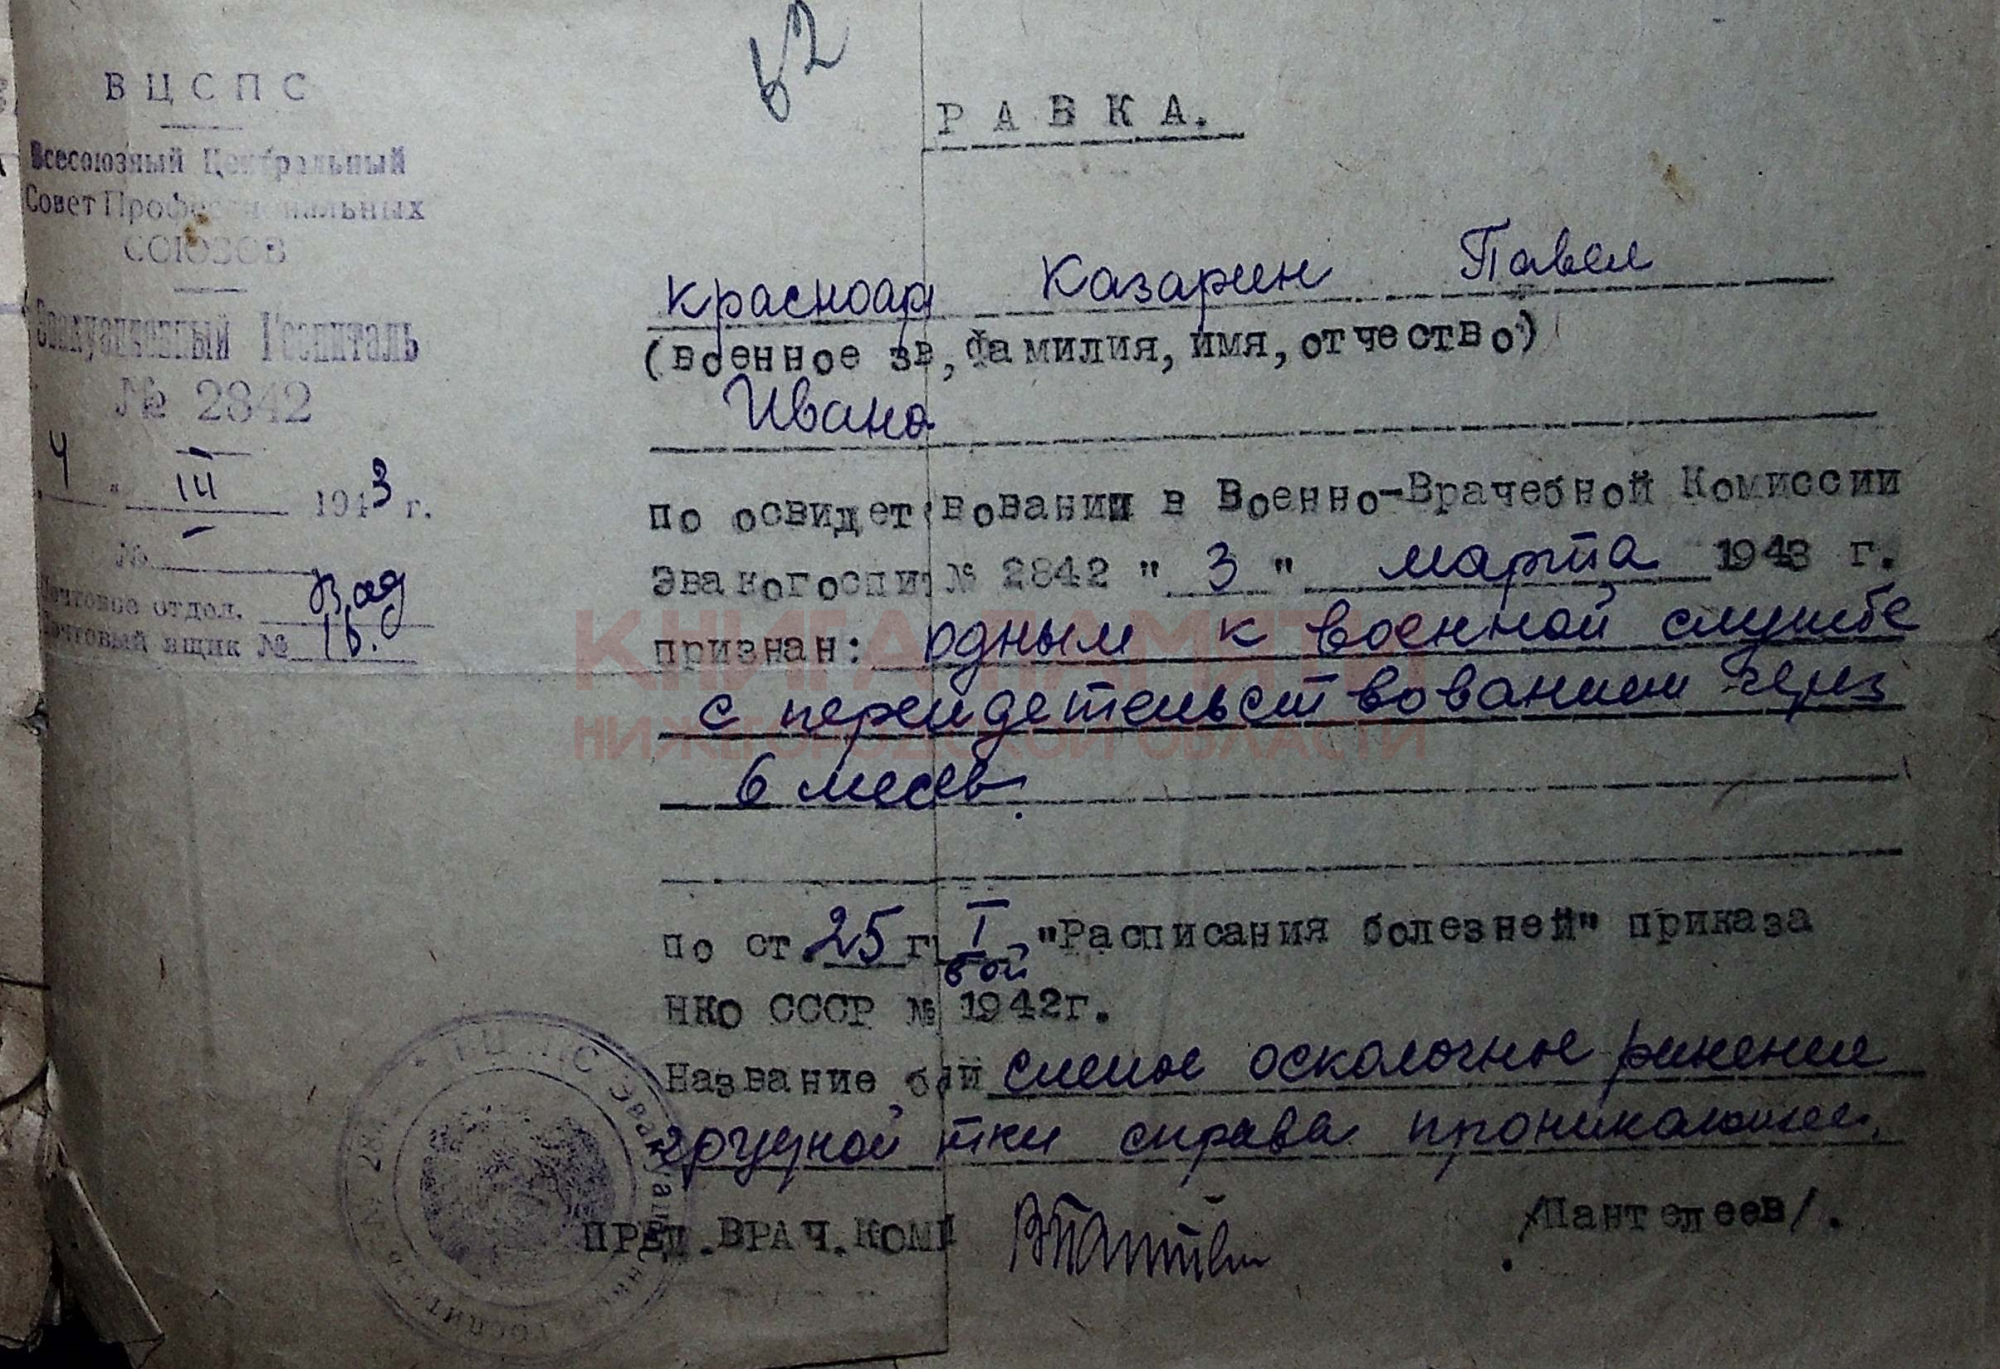 62
ВЦСПС
Всесоюзный Центральный
Совет Профессиональных
СОЮЗОВ
Эвакуационный Госпиталь
№ 2842
"4" III 1943 г.
№
Почтовое отдел.
Почтовый ящик №
РАВКА.
красноар Казарин Павел
(военное зв, фамилия, имя, отчество)
Ивано
по освидет вовании в Военно-Врачебной Комиссии
Эвакогоспи № 2842 " 3 " марта 1943 г.
признан: одным к военной службе
с переидетельствованием через
6 месяв.
по ст. 25 г I "Расписания болезней" приказа
НКО СССР № 1942г.
Название б й слепое осколочное ранение
грудной тки справа проникающее.
ПРЕД. ВРАЧ. КОМИ /Пантелеев/.
КНИГА ПАМЯТИ
НИЖЕГОРОДСКОЙ ОБЛАСТИ